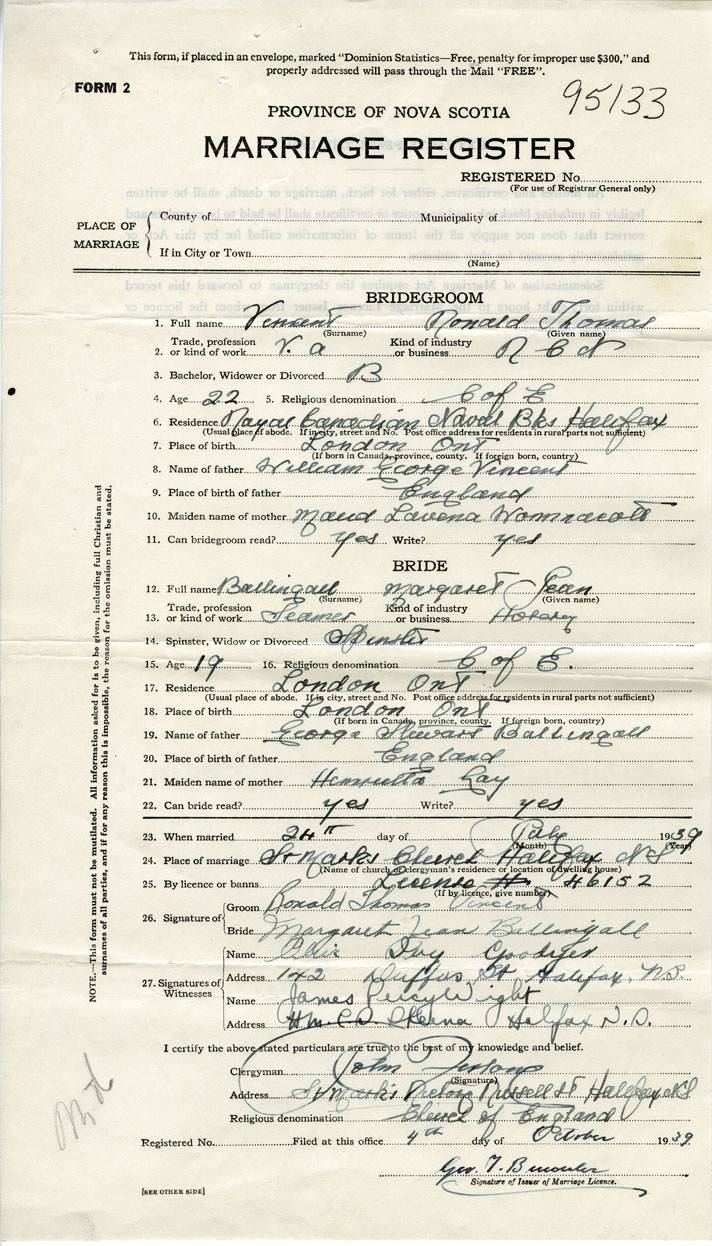 This form, if placed in an envelope, marked "Dominion Statistics—Free, penalty for improper use $300," and
properly addressed will pass through the Mail "FREE".
FORM 2
95133
PROVINCE OF NOVA SCOTIA
MARRIAGE REGISTER
REGISTERED No.
(For use of Registrar General only)
PLACE OF MARRIAGE
County of Municipality of
If in City or Town
(Name)
BRIDEGROOM
1. Full name Vincent Ronald Thomas
(Surname) (Given name)
2. Trade, profession or kind of work V. a Kind of industry or business R C N
3. Bachelor, Widower or Divorced B
4. Age 22 5. Religious denomination C of E
6. Residence Royal Canadian Naval Bks Halifax
(Usual place of abode. If in city, street and No. Post office address for residents in rural parts not sufficient)
7. Place of birth London Ont
(If born in Canada, province, county. If foreign born, country)
8. Name of father William George Vincent
9. Place of birth of father England
10. Maiden name of mother Maud Lavena Wonnacott
11. Can bridegroom read? yes Write? yes
BRIDE
12. Full name Ballingall Margaret Jean
(Surname) (Given name)
13. Trade, profession or kind of work Seamer Kind of industry or business Hosiery
14. Spinster, Widow or Divorced Spinster
15. Age 19 16. Religious denomination C of E.
17. Residence London Ont
(Usual place of abode. If in city, street and No. Post office address for residents in rural parts not sufficient)
18. Place of birth London Ont
(If born in Canada, province, county. If foreign born, country)
19. Name of father George Stewart Ballingall
20. Place of birth of father England
21. Maiden name of mother Henrietta Gay
22. Can bride read? yes Write? yes
23. When married 24th day of July 1939
(Month) (Year)
24. Place of marriage St Mark's Church Halifax NS
(Name of church or clergyman's residence or location of dwelling house)
25. By licence or banns License # 46152
(If by licence, give number)
26. Signature of
Groom Ronald Thomas Vincent
Bride Margaret Jean Ballingall
27. Signatures of Witnesses
Name Ivy
Address 142 Duffus St Halifax, N.S.
Name James Percy Wright
Address H.M.C.S. Skeena Halifax N.S.
I certify the above stated particulars are true to the best of my knowledge and belief.
Clergyman John
(Signature)
Address St Mark's Russell St Halifax NS
Religious denomination Church of England
Registered No. Filed at this office 4th day of October 1939
Geo.
Signature of Issuer of Marriage Licence.
[SEE OTHER SIDE]
NOTE.—This form must not be mutilated. All information asked for is to be given, including full Christian and
surnames of all parties, and if for any reason this is impossible, the reason for the omission must be stated.